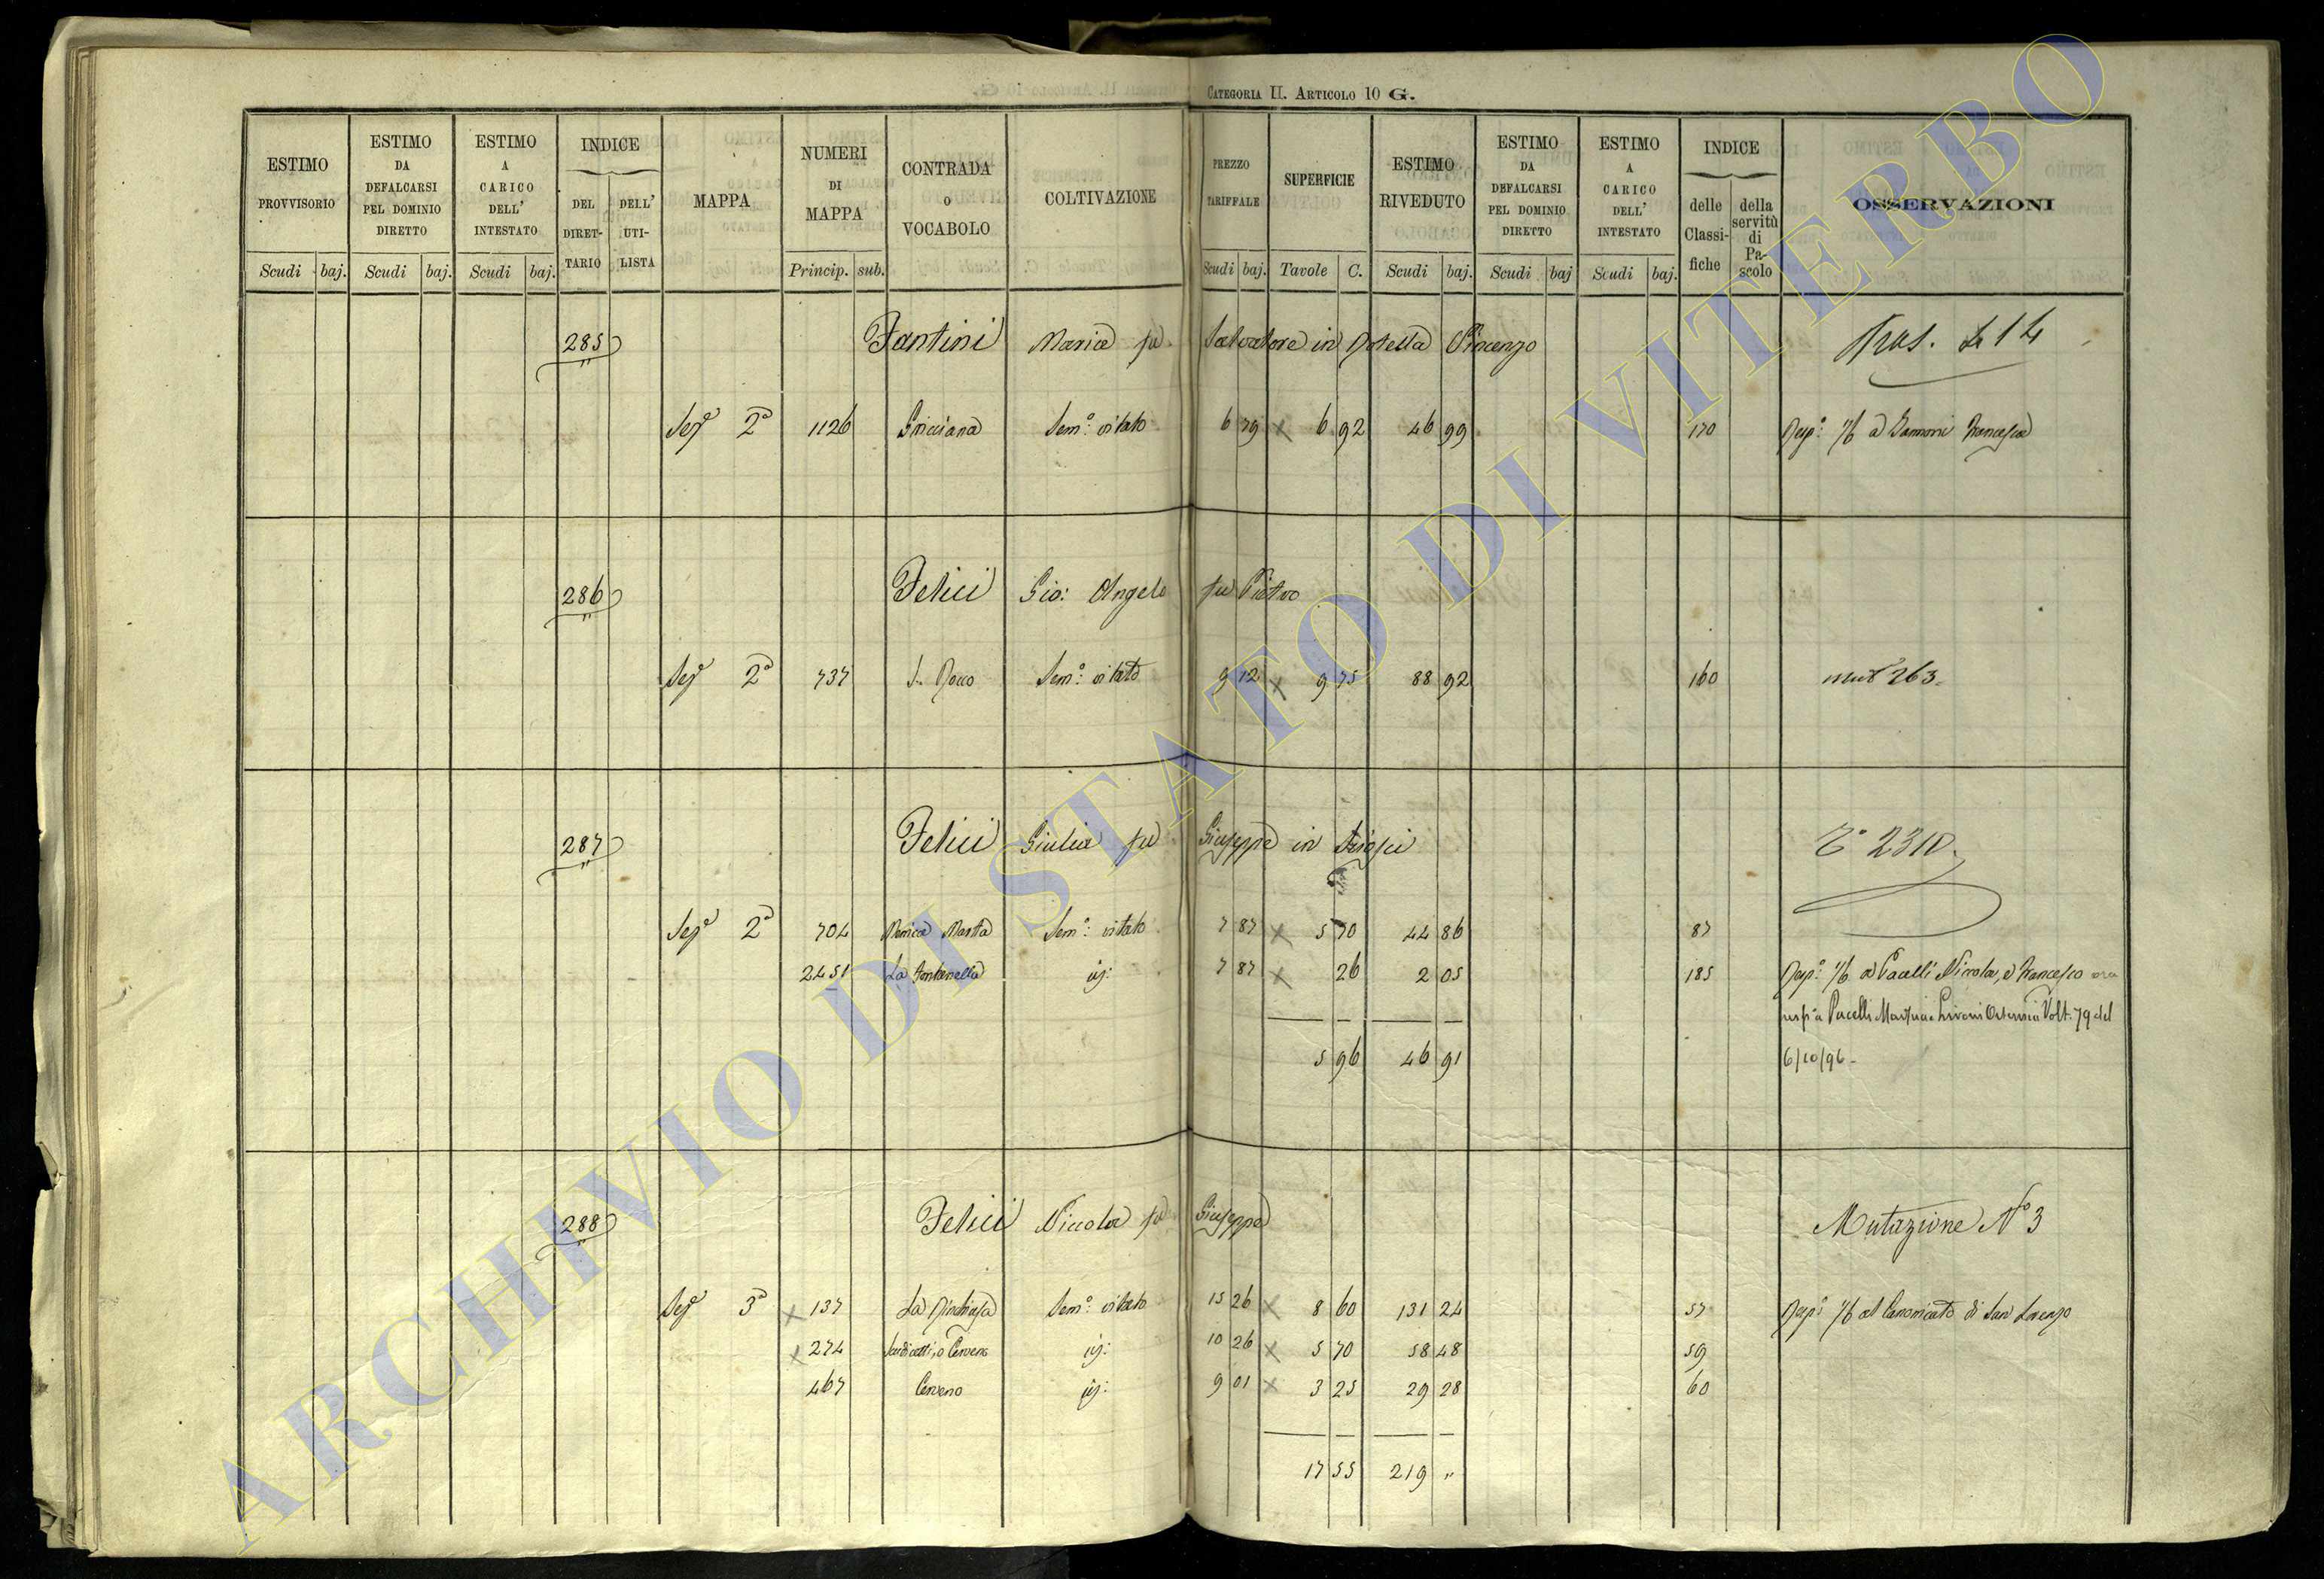 CATEGORIA II. ARTICOLO 10 G.
ESTIMO PROVVISORIO
ESTIMO DA DEFALCARSI PEL DOMINIO DIRETTO
ESTIMO A CARICO DELL' INTESTATO
INDICE
DEL DIRETTARIO
DELL' UTILISTA
MAPPA
NUMERI DI MAPPA
CONTRADA O VOCABOLO
COLTIVAZIONE
PREZZO TARIFFALE
SUPERFICIE
ESTIMO RIVEDUTO
ESTIMO DA DEFALCARSI PEL DOMINIO DIRETTO
ESTIMO A CARICO DELL' INTESTATO
INDICE
delle Classifiche
della servitù di Pascolo
OSSERVAZIONI
Scudi baj. Scudi baj. Scudi baj. Princip. sub. Scudi baj. Tavole C. Scudi baj. Scudi baj Scudi baj.
285 Fantini Maria fu Salvatore in Vincenzo
Sez.e 2a 1126 Sem.o vitato 6 79 6 92 46 99 170 Risp. 1/6 a Francesca
286 Felici Gio: Angelo fu Pietro
Sez.e 2a 737 S. Rocco Sem.o vitato 9 12 9 75 88 92 160 263
287 Felici Giulia fu Giuseppe in
Sez.e 2a 704 Sem.o vitato 7 87 5 70 44 86 87
2451 La Fontanella id: 7 87 26 2 05 185 Risp. 1/6 a Pacelli Nicola, e Francesco ora
Volt. 79 del
5 96 46 91 6/10/96
288 Felici Niccola fu Giuseppe Mutazione No 3
Sez.e 3a 137 Sem.o vitato 15 26 8 60 131 24 57 Risp. 1/6 al Canonicato di San Lorenzo
274 id: 10 26 5 70 58 48 59
467 Cerveno id: 9 01 3 25 29 28 60
17 55 219 "
ARCHIVIO DI STATO DI VITERBO